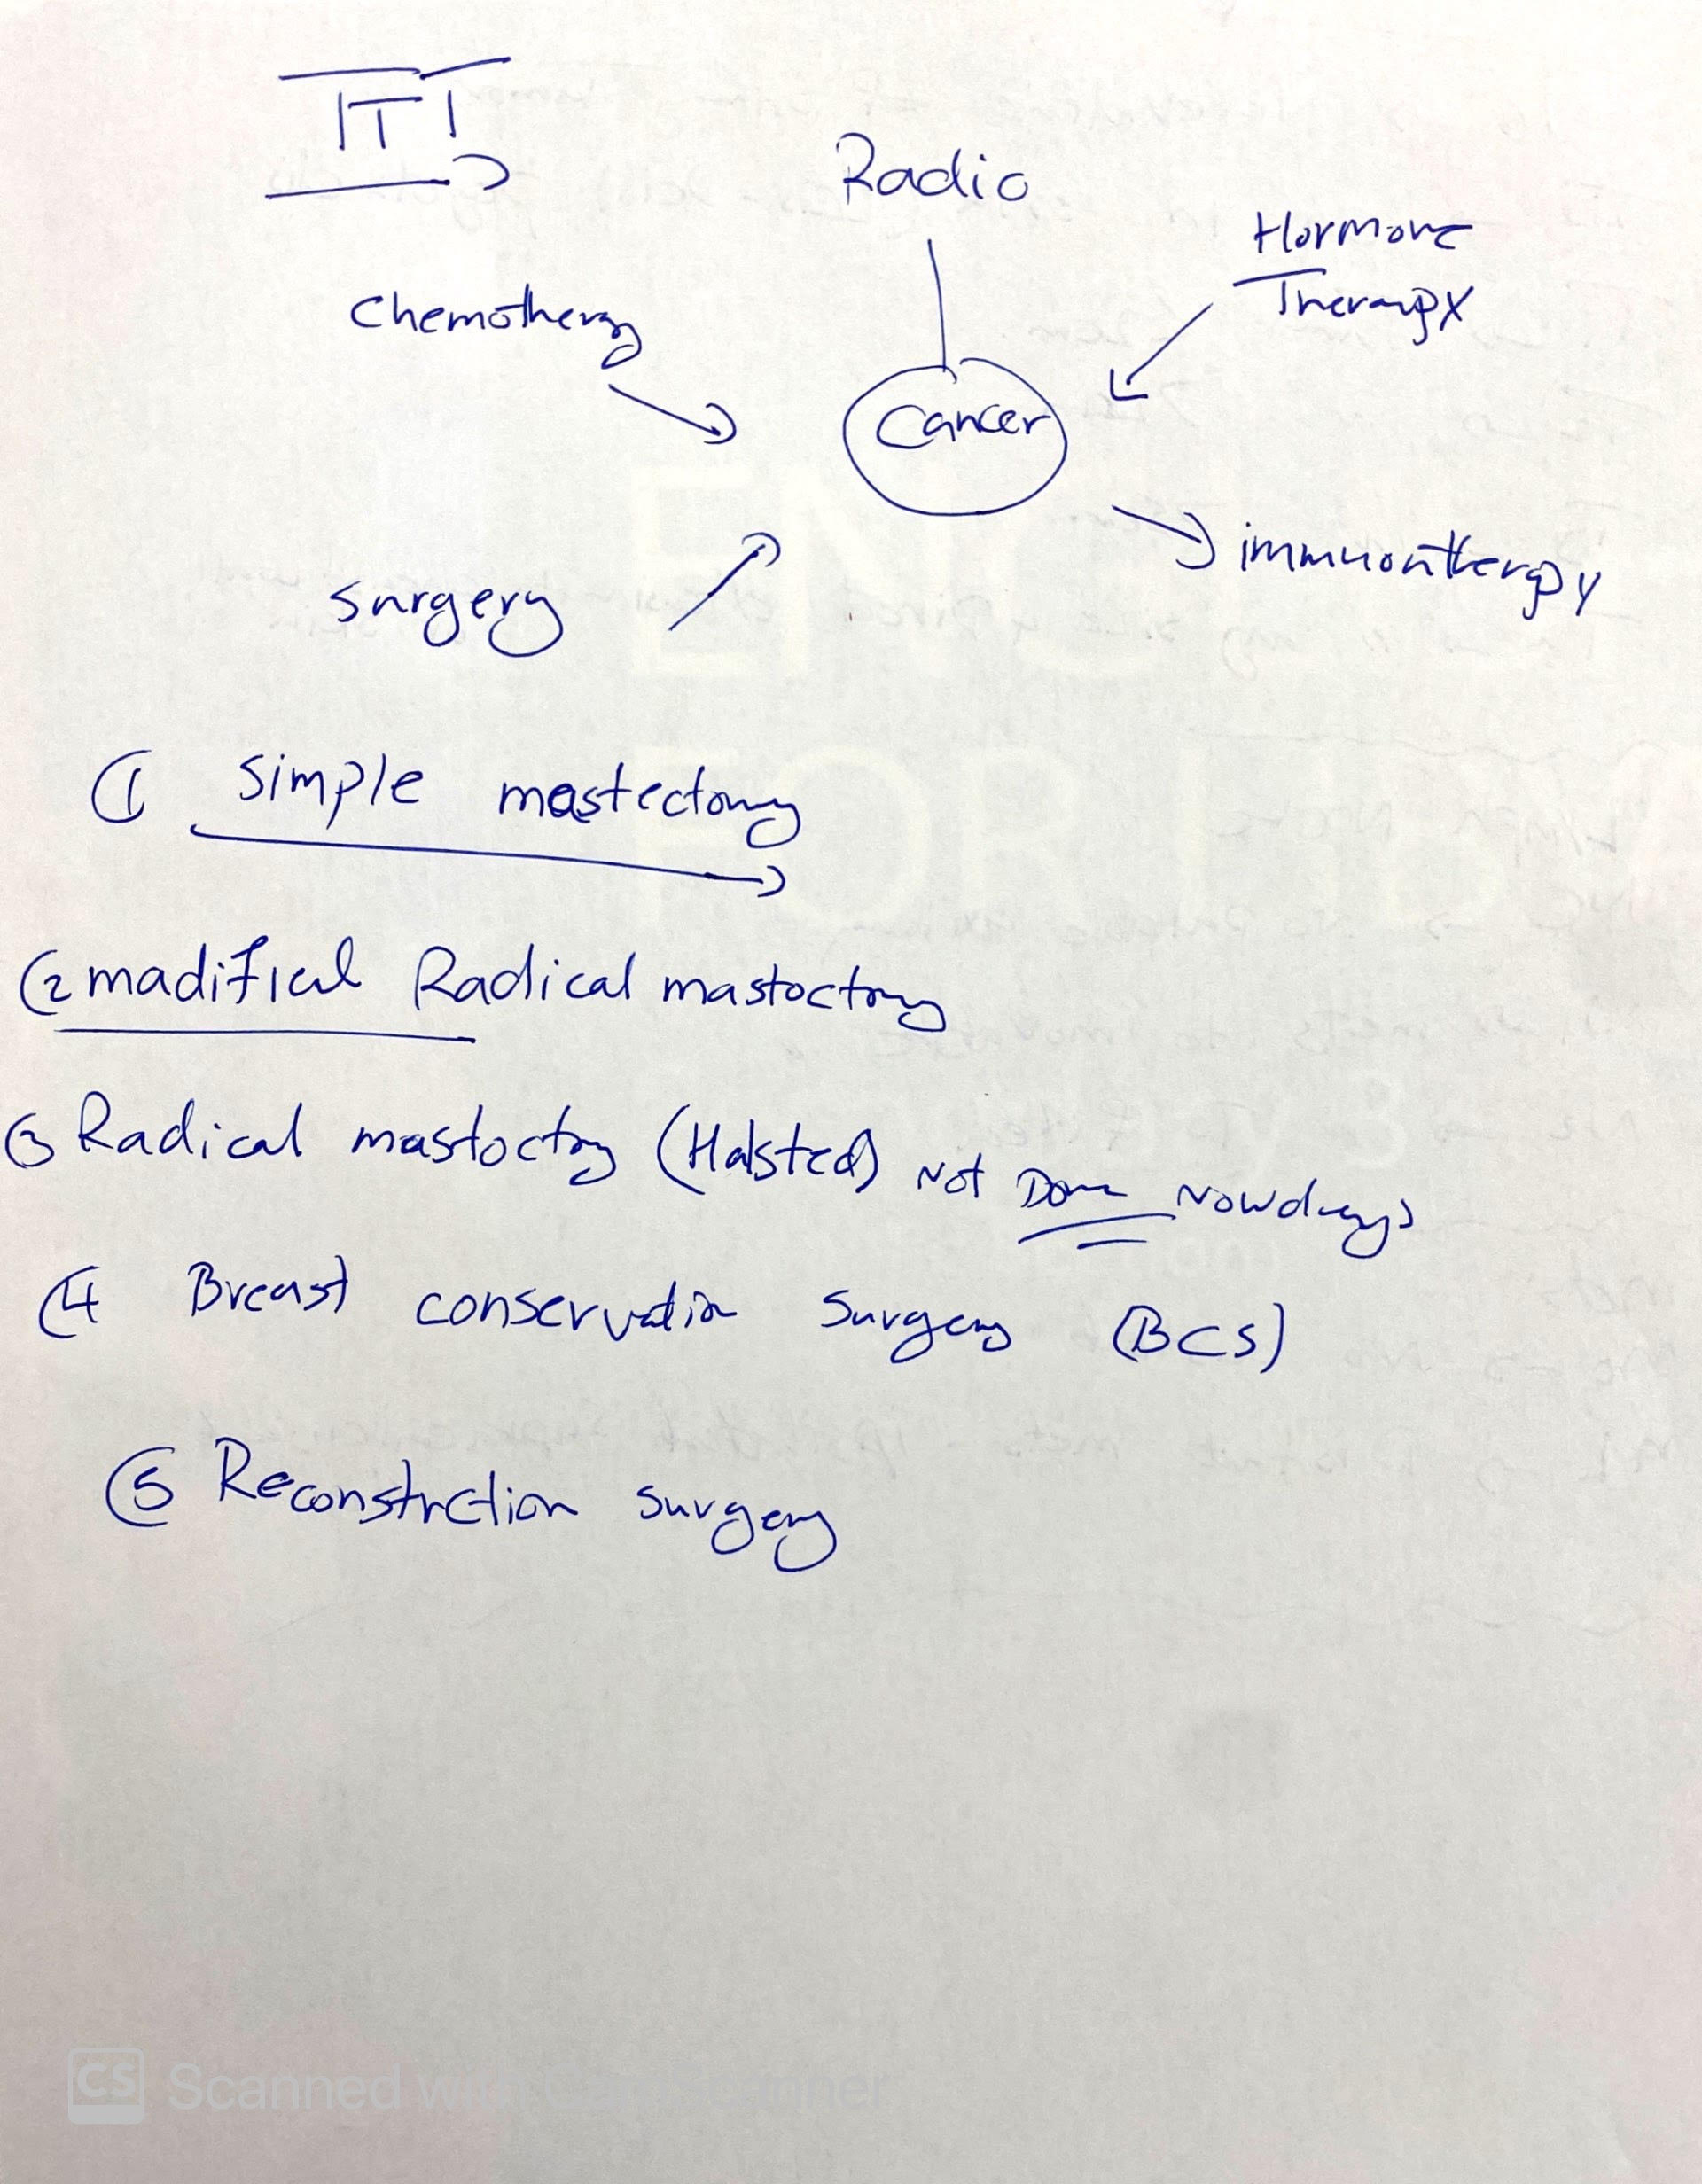 TTT
Radio
Hormone
Therapy
Chemotherapy
Cancer
immuontherapy
surgery
① Simple mastectomy
② madifical Radical mastoctomy
③ Radical mastoctmy (Halsted) Not Done Nowdays
④ Breast conservation Surgery (BCS)
⑤ Reconstrction surgery
CS Scanned with CamScanner